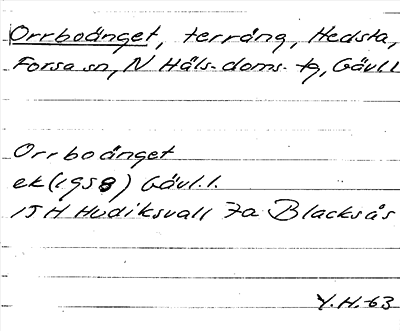 Orrboänget, terräng, Hedsta,
Forsa sn, N Häls. doms. tg, Gävl.l
Orrboänget
ek (1958) Gävl.l.
15H Hudiksvall 7a Blacksås
Y.H.-63